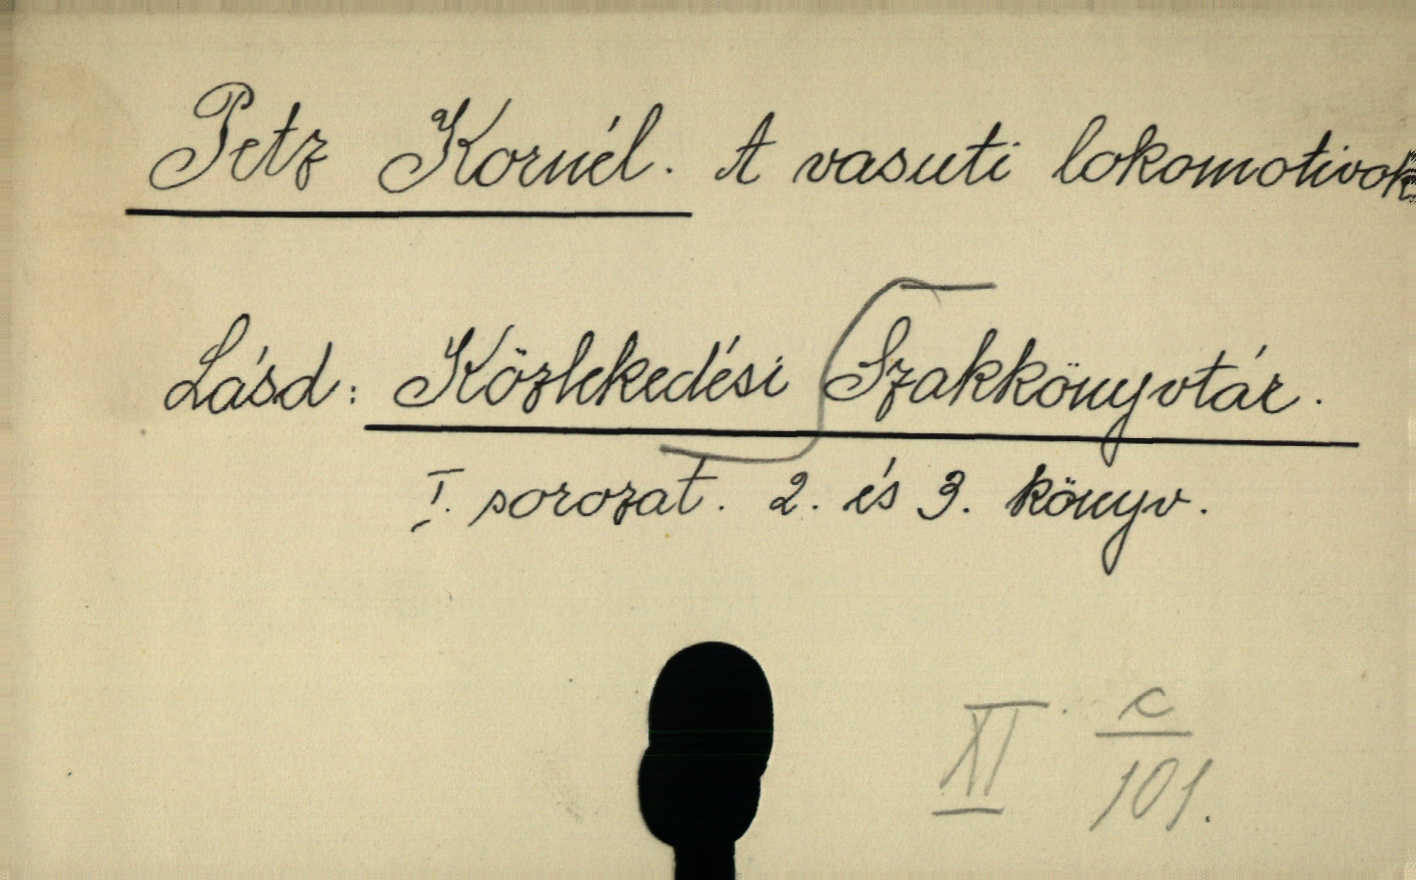 Petz Kornél. A vasuti lokomotivok
Lásd: Közlekedési Szakkönyvtár.
I. sorozat. 2. és 3. könyv.
XI. c
101.